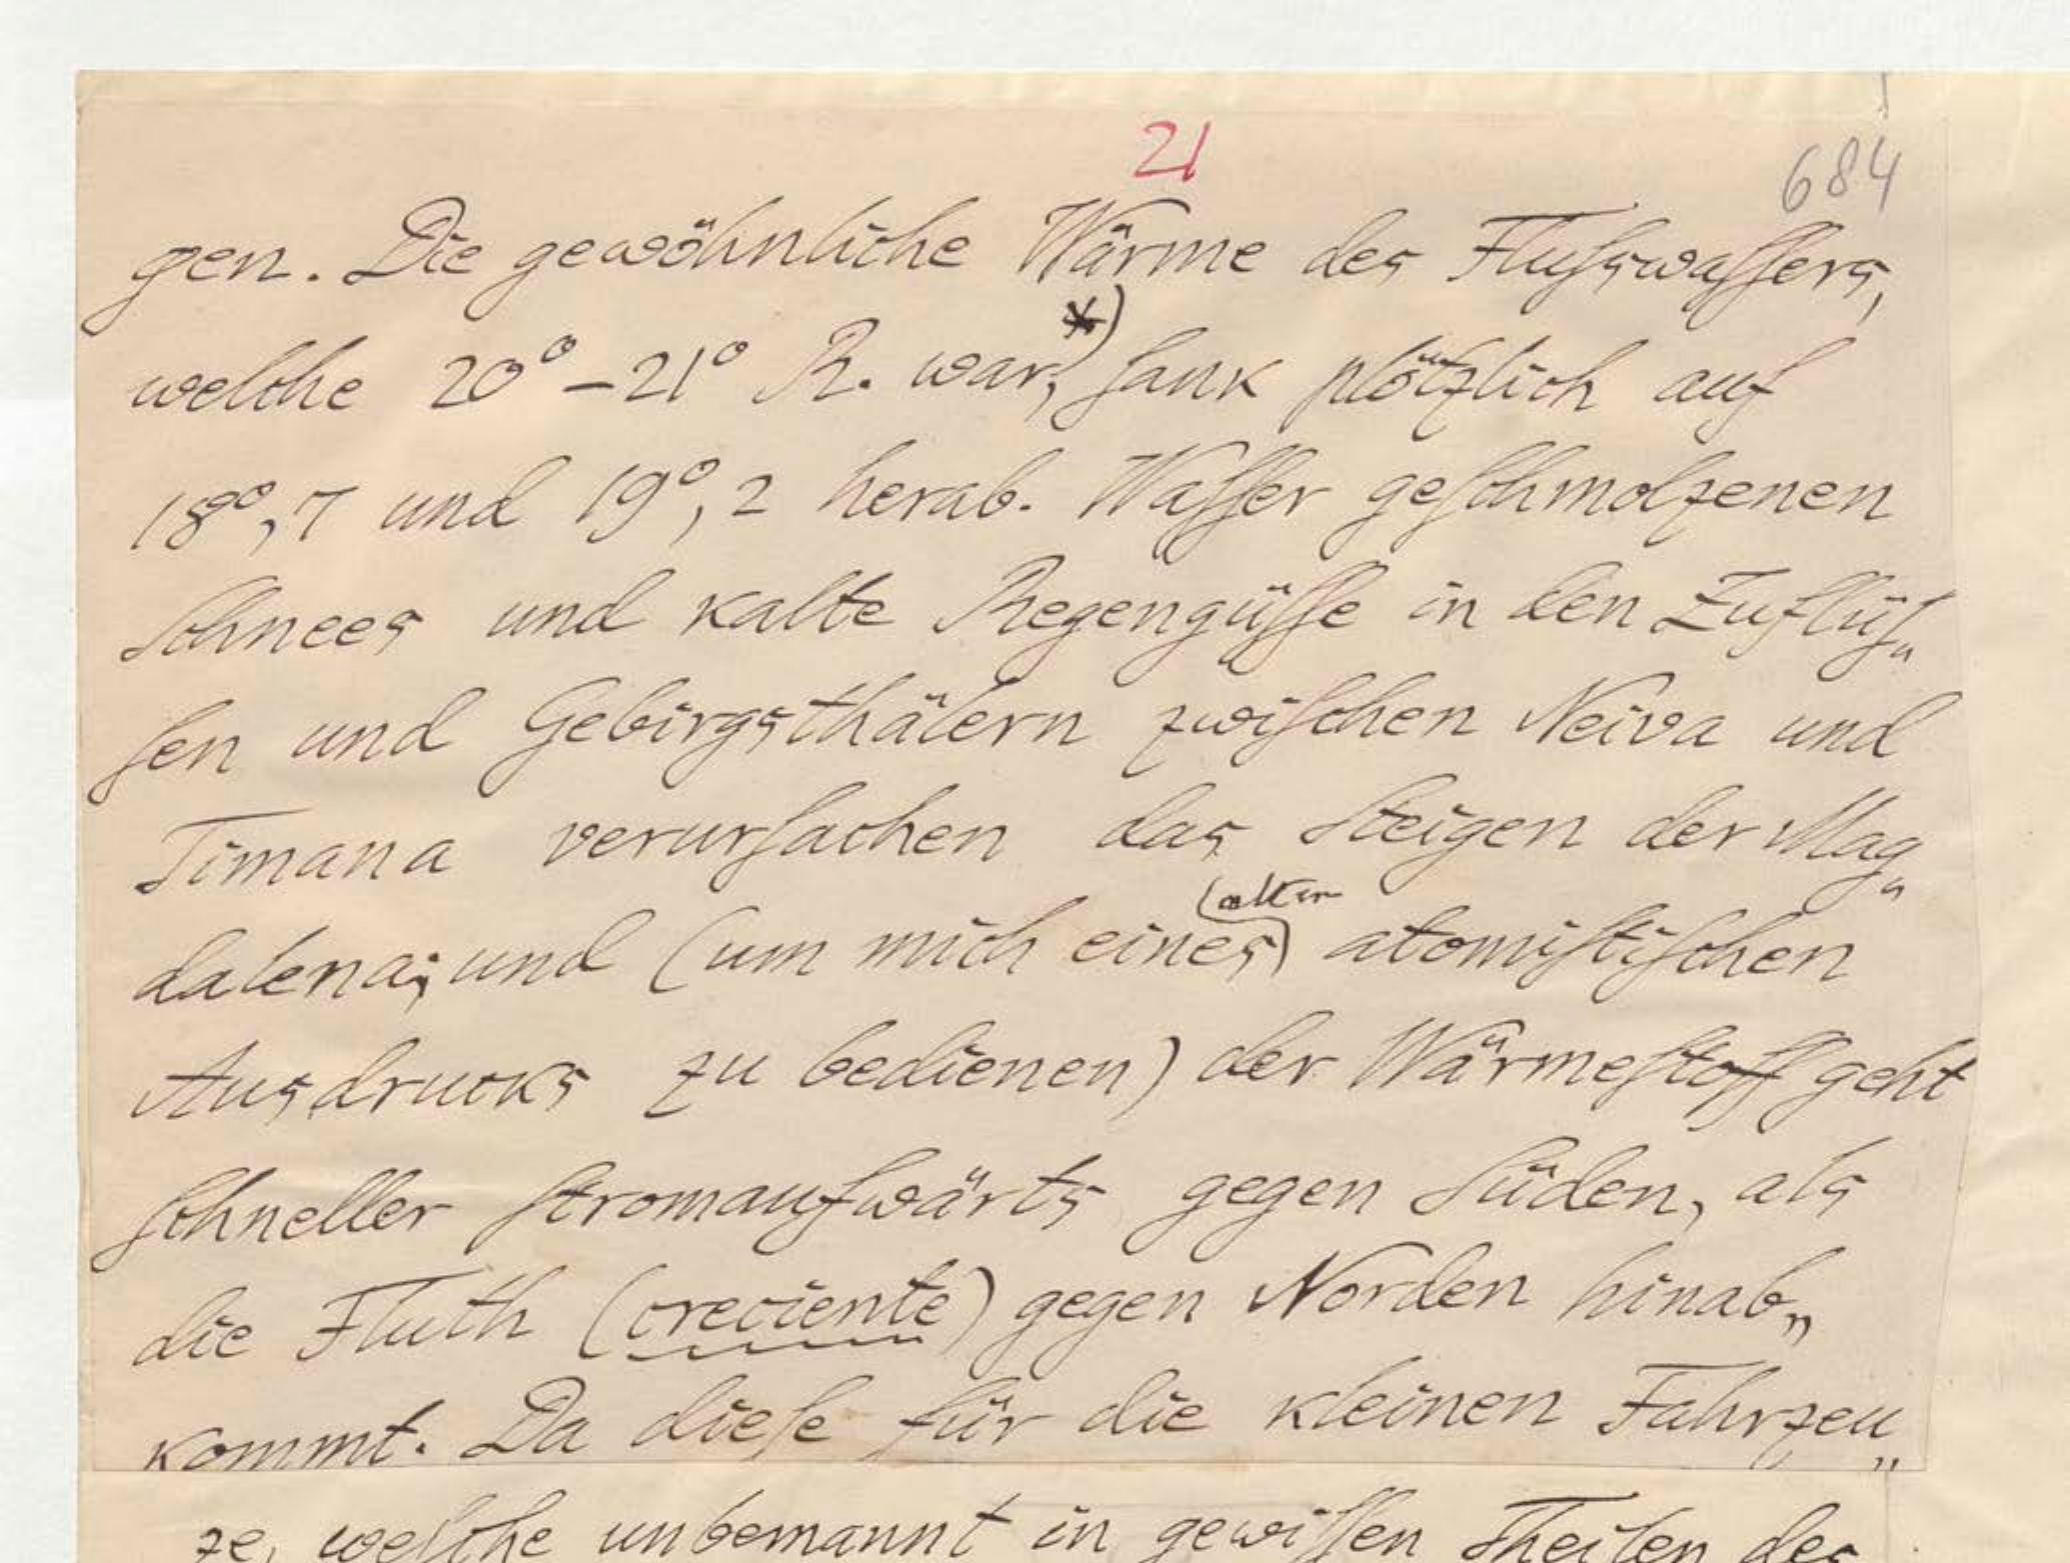 21
684
gen. Die gewöhnliche Wärme des Fluſswaſſers,
welche 20° – 21° R. war,*) ſank plötzlich auf
18°,7 und 19°,2 herab. Waſſer geſchmolzenen
Schnees und kalte Regengüſſe in den Zuflüſ„
ſen und Gebirgsthälern zwiſchen Neiva und
Timana verurſachen das Steigen der Mag„
dalena; und (um mich eines alten atomiſtiſchen
Ausdrucks zu bedienen) der Wärmeſtoff geht
ſchneller ſtromaufwärts gegen Süden, als
die Fluth (creciente) gegen Norden hinab„
kommt. Da dieſe für die kleinen Fahrzeu„
ge, welche unbemannt in gewiſſen Theilen des